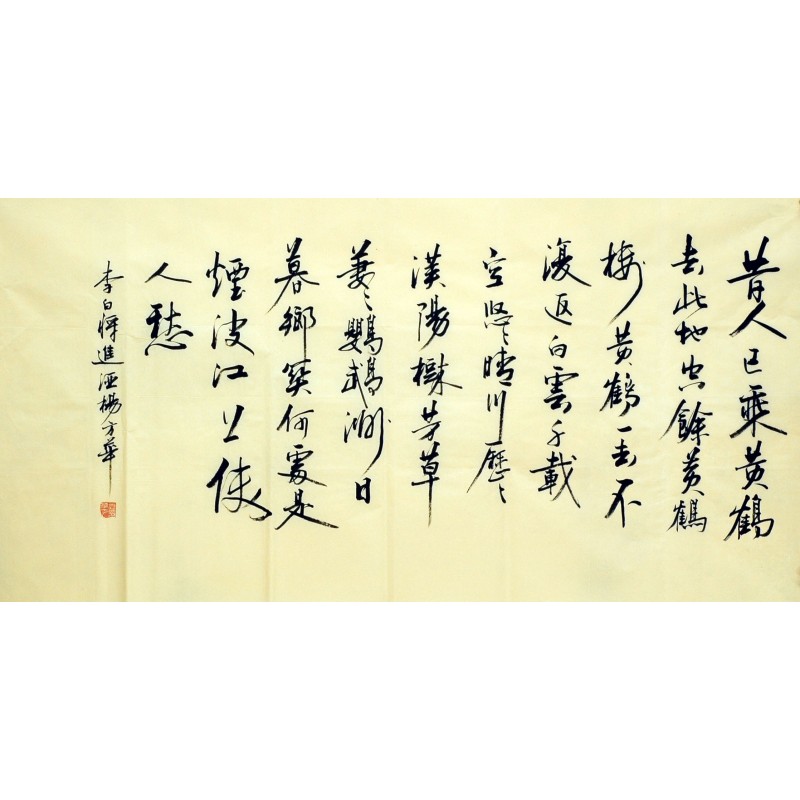 昔人已乘黄鶴
去此地空餘黄鶴
樓黄鶴一去不
復返白雲千載
空悠々晴川歷々
漢陽樹芳草
萋々鸚鵡洲日
暮鄉關何處是
煙波江上使
人愁
李白將進酒楊方華